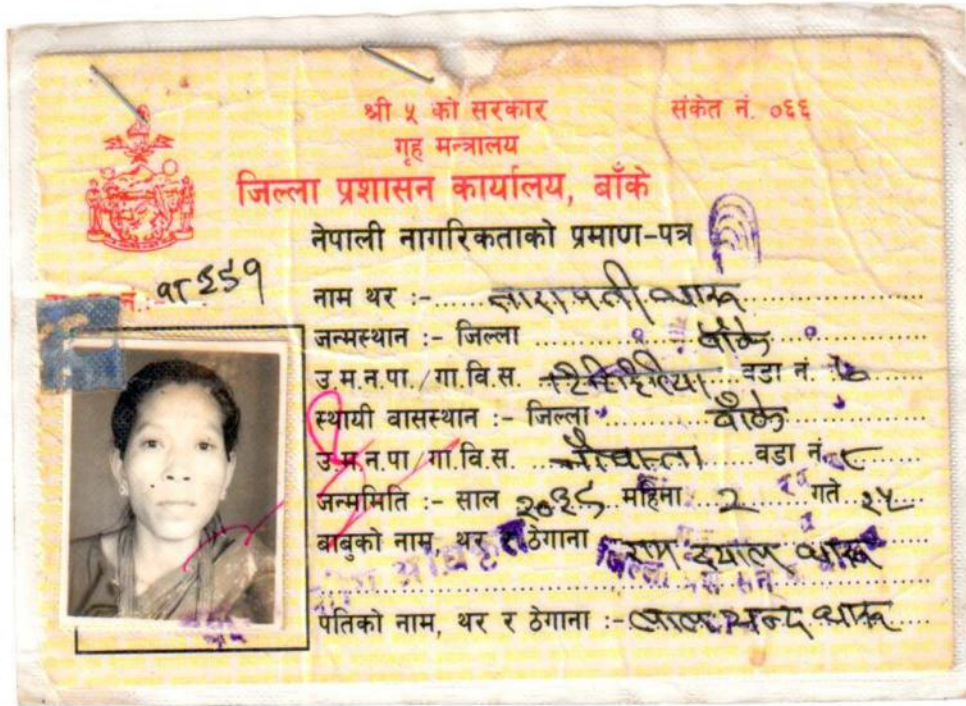 श्री ५ को सरकार
संकेत नं. ०६६
गृह मन्त्रालय
जिल्ला प्रशासन कार्यालय, बाँके
नेपाली नागरिकताको प्रमाण-पत्र
नं.:-
नाम थर :- थारू
जन्मस्थान :- जिल्ला बाँके
उ.म.न.पा./गा.वि.स. वडा नं.
स्थायी वासस्थान :- जिल्ला बाँके
उ.म.न.पा/गा.वि.स. नौवस्ता वडा नं. ८
जन्ममिति :- साल महिना २ गते २५
बाबुको नाम, थर र ठेगाना राम दयाल थारू
पतिको नाम, थर र ठेगाना :- लाल चन्द थारू